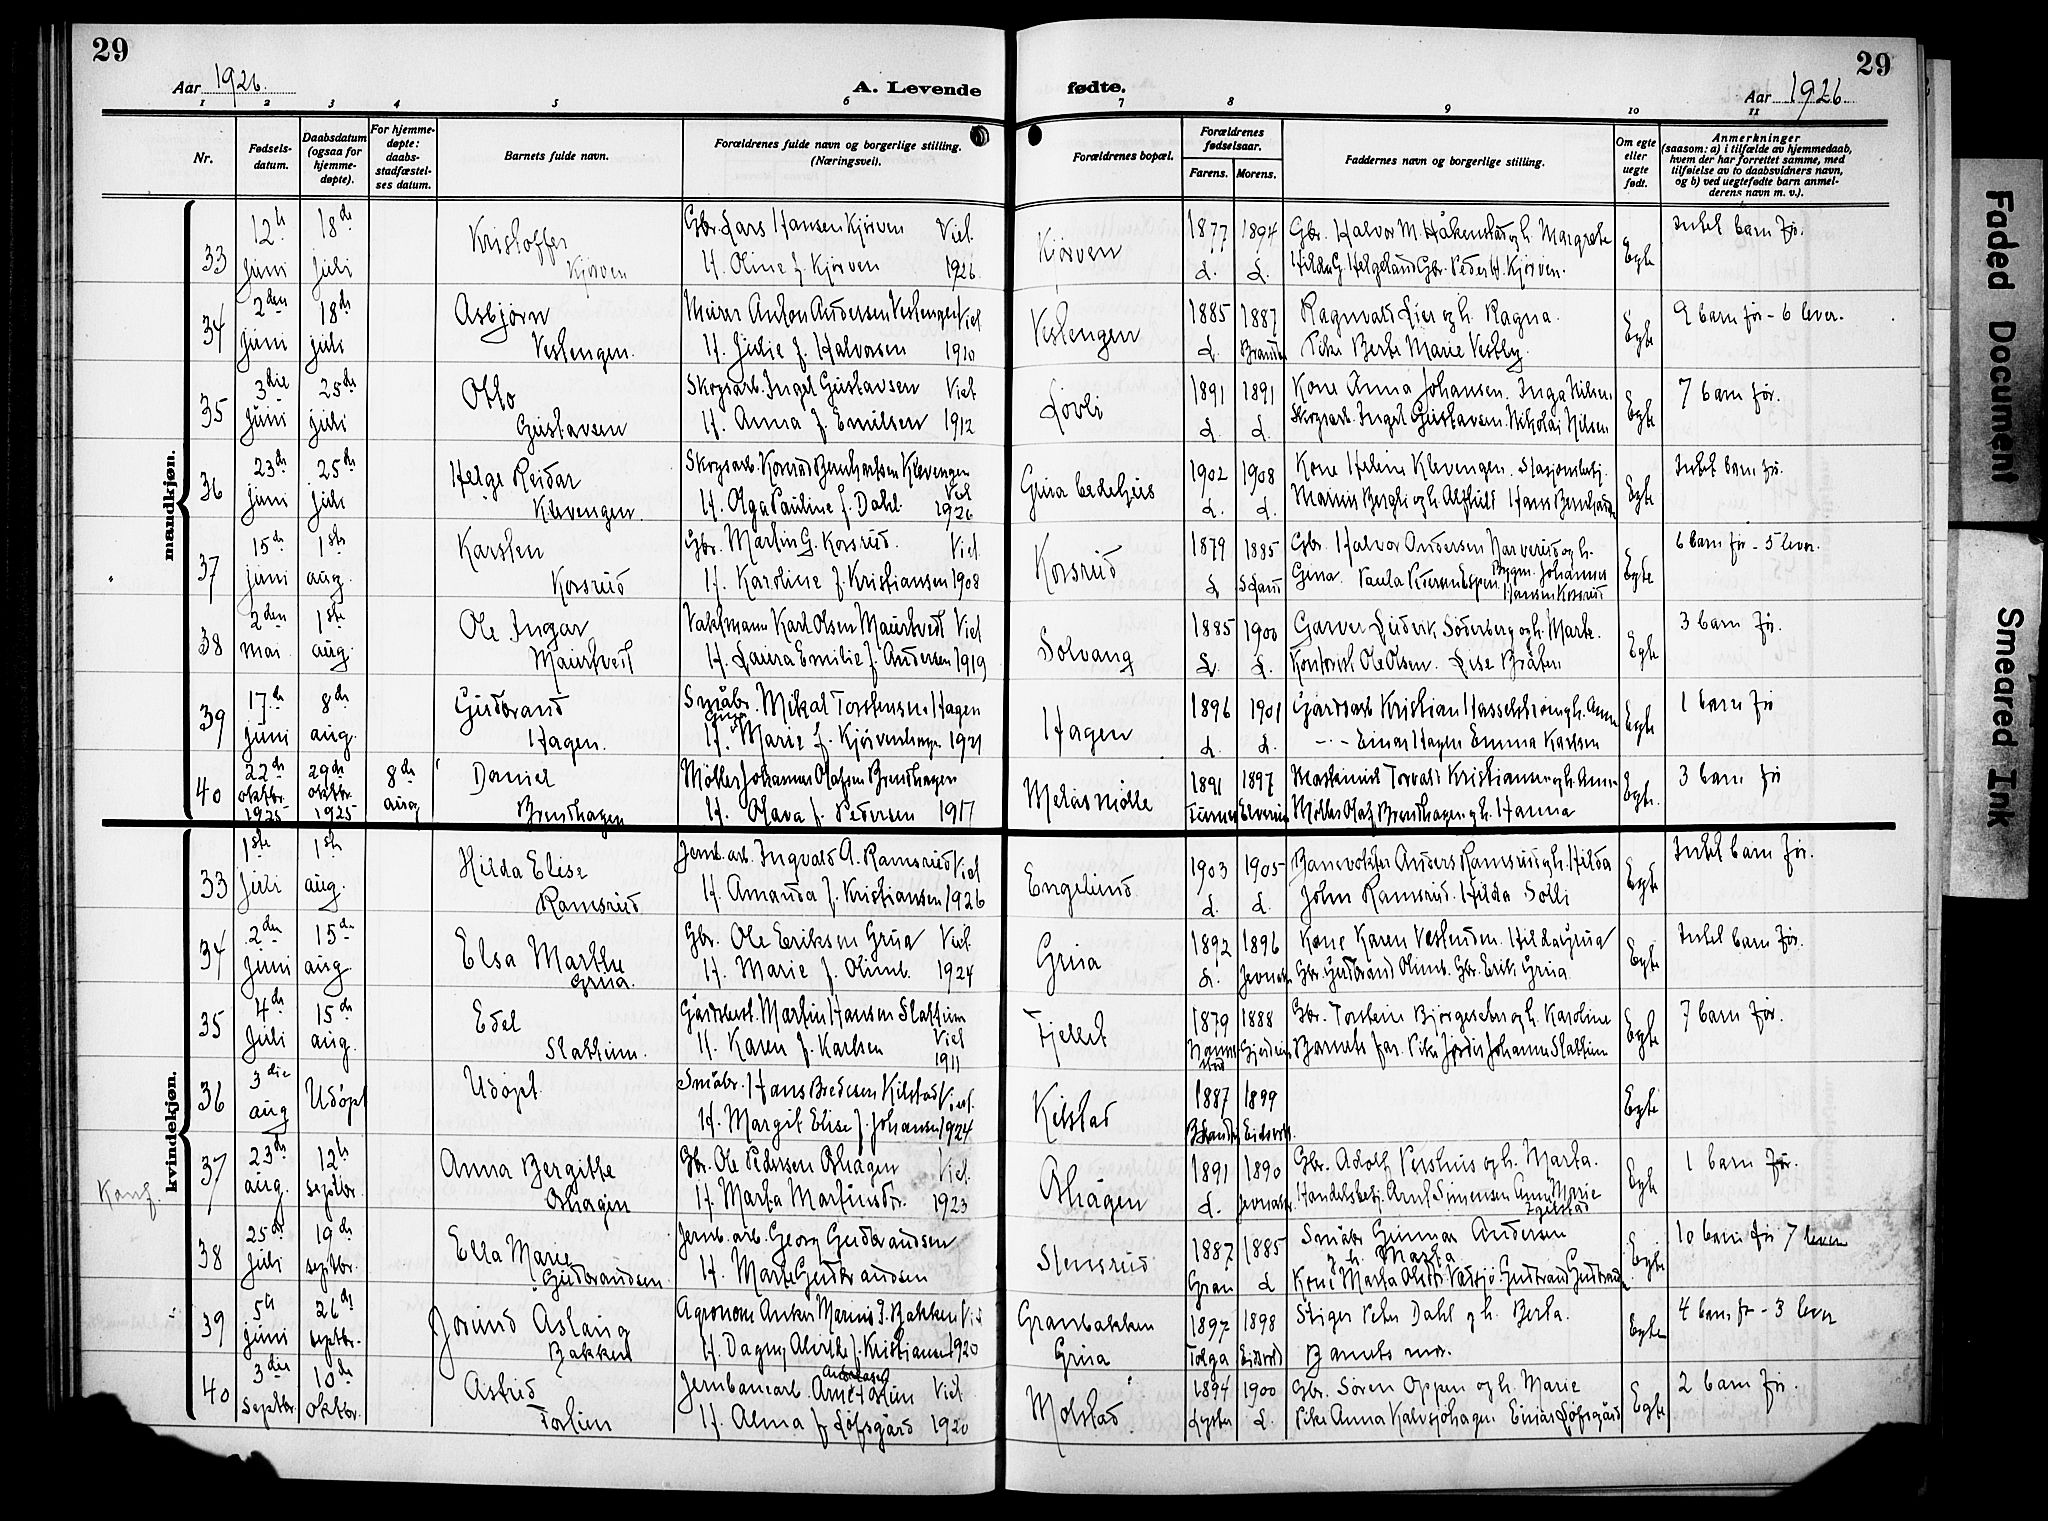 29
29
Aar 1926.
A. Levende
fødte.
Aar 1926.
1 2 3 4 5 6 7 8 9 10 11
Nr.
Fødsels-
datum.
Daabsdatum
(ogsaa for
hjemme-
døpte).
For hjemme-
døpte:
daabs-
stadfæstel-
ses datum.
Barnets fulde navn.
Forældrenes fulde navn og borgerlige stilling.
(Næringsvei).
Forældrenes bopæl.
Forældrenes
fødselsaar.
Farens. Morens.
Faddernes navn og borgerlige stilling.
Om egte
eller
uegte
født.
Anmerkninger
(saasom: a) i tilfælde av hjemmedaab,
hvem der har forrettet samme, med
tilføielse av to daabsvidners navn,
og b) ved uegtefødte barn anmel-
derens navn m. v.).
mandkjøn.
33 12te 18de Gbr. Lars Hansen Kjørven Viet 1877 1894 Gbr. Halvor M. Håkenstad og h. Margrete Intet barn før.
Juni Juli Kristoffer Kjørven H. Oline f. Kjørven 1926 Kjørven L. L. Hilda G. Helgeland Gbr. Peder H. Kjørven. Egte
34 2den 18de Asbjørn Murer Anton Andersen Vestengen Viet 1885 1887 Ragnvald Lier og h. Ragna. 9 barn før - 6 lever.
Juni Juli Vestengen. H. Julie f. Halvorsen 1910 Vestengen L. Brandbu Pike Berte Marie Vestby Egte
35 3die 25de Otto Skogsarb. Ingel Gustavsen Viet 1891 1891 Kone Anna Johansen. Inga Nilsen 7 barn før.
Juni Juli Gustavsen H. Anna f. Emilsen 1912 Lovli L. L. Skogsarb. Ingel Gustavsen. Nikolai Nilsen Egte
36 23de 25de Helge Reidar Skogsarb. Konrad Bernhartsen Klevengen 1902 1908 Kone Heline Klevengen. Stasjonsbetj. Intet barn før.
Juni Juli Klevengen. H. Olga Pauline f. Dahl. Viet 1926 Grua bedehus L. L. Marius Bergli og h. Alfhild Hans Bernhardt Egte
37 15de 1ste Karsten Gbr. Martin G. Korsrud. Viet 1879 1885 Gbr. Halvor Andersen Narverud og h. 6 barn før - 5 lever.
Juni aug. Korsrud H. Karoline f. Kristiansen 1908 Korsrud L. S. Land Gina. Paula Petersen Espen. Bygm. Johannes Hansen Korsrud Egte
38 2den 1ste Ole Ingar Vaktmann Karl Olsen Maurtvedt Viet 1885 1900 Garver Ludvik Söderberg og h. Marte. 3 barn før.
mai aug. Maurtvedt H. Laura Emilie f. Andersen 1919 Solvang L. L. Kontorist Ole Olsen. Lise Bråten Egte
39 17de 8de Gudbrand Småbr. Mikal Torstensen Hagen 1896 1901 Gårdsarb Kristian Hasselstrøm og h. Anna 1 barn før
Juni aug. Hagen. H. Marie f. Kjørvenhage 1921 Hagen L. L. - - Einar Hagen Emma Karlsen Egte
40 22de 29de 8de Daniel Møller Johannes Olafsen Brendhagen 1891 1897 Maskinist Torvald Kristiansen og h. Anna 3 barn før
oktbr. 1925 oktbr. 1925 aug Brendhagen H. Olava f. Pedersen 1917 Melås mølle Furnes Elverum Møller Olaf Brendhagen og h. Hanna Egte.
kvindekjøn.
33 1ste 1ste Hilda Elise Jernb.arb. Ingvald A. Ramsrud Viet 1903 1905 Banevokter Anders Ramsrud og h. Hilda Intet barn før.
Juli aug. Ramsrud H. Amanda f. Kristiansen 1926 Engelund. L. L. John Ramsrud. Hilda Solli Egte
34 2den 15de Elsa Marthe Gbr. Ole Eriksen Grua Viet 1892 1896 Kone Karen Vestenden. Hilda Grua Intet barn før.
Juni aug. Grua. H. Marie f. Olimb. 1924 Grua L. Jevnaker Gbr. Gudbrand Olimb. Gbr. Erik Grua Egte
35 4de 15de Edel Gårdbest. Martin Hansen Slattum 1879 1888 Gbr. Torstein Bjørgeseter og h. Karoline 7 barn før.
Juli aug. Slattum. H. Karen f. Karlsen Viet 1911 Fjellet Nannestad Gjerdrum Barnets far. Pike Jordis Johanne Slattum Egte
36 3die Udøpt Udøpt. Småbr. Hans Bredesen Kilstad Viet. 1887 1899
aug H. Margit Elise f. Johansen 1924 Kilstad Brandbu Eidsvold. Egte
37 23de 12te Anna Bergitte Gbr. Ole Pedersen Øhagen Viet 1891 1890 Gbr. Adolf Vershus og h. Marta. 1 barn før.
Konf. aug. septbr. Øhagen H. Marta Martinsdtr. 1923 Øhagen L. Jevnaker Handelsbetj. Arnt Simensen Anne Marie Egilstad Egte
38 25de 19de Ella Marie Jernb.arb. Georg Gudbrandsen 1887 1885 Småbr Gunnar Andersen og h. Marta 10 barn før 7 lever
Juli septbr. Gudbrandsen H. Marte Gudbrandsen Stensrud Gran L Kone Marta Olsdtr. Vassjø. Gudbrand Gudbrandsen Egte
39 5te 26de Jorund Aslaug Agronom Anker Marius J. Bakken Viet Granbakken 1897 1898 Stiger Peter Dahl og h. Berta. 4 barn før - 3 lever
Juni septbr. Bakken H. Dagny Alvilde f. Kristiansen 1920 Grua Tolga Eidsvold Barnets mor. Egte
40 3die 10de Astrid Jernbanearb. Arne Toslien Viet 1894 1900 Gbr. Søren Oppen og h. Marie 2 barn før.
septbr. oktbr. Torlien H. Alma f. Løfsgård 1920 Molstad Lyster L. Pike Anna Kalvsjøhagen Einar Løfsgård Egte
Faded Document
Smeared Ink